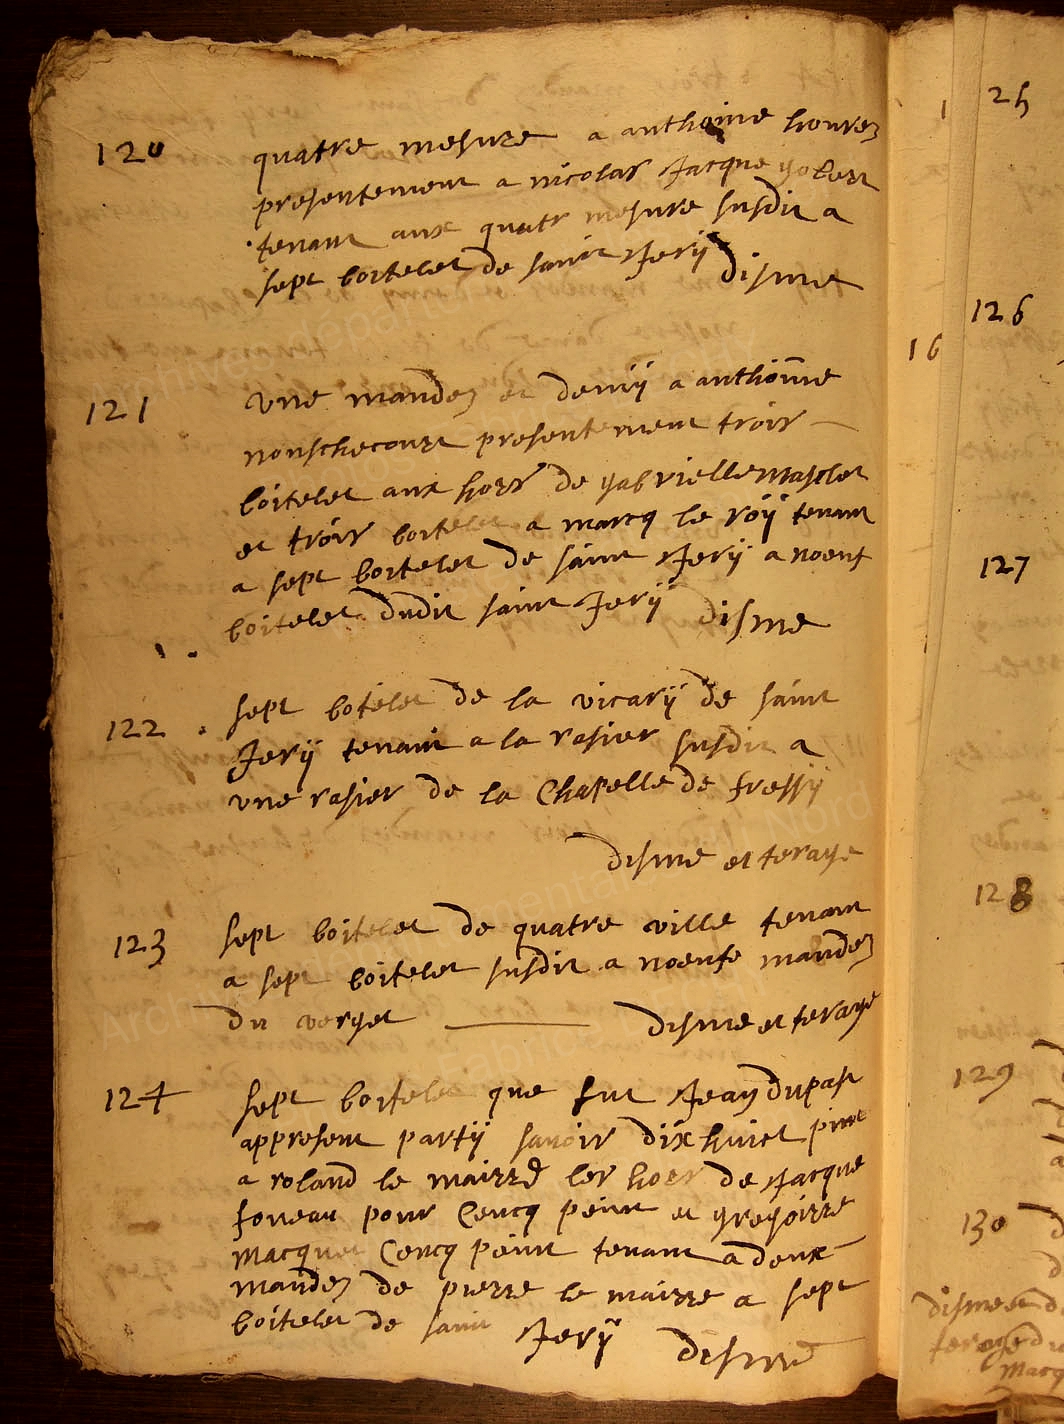 120 quatre mesure a anthoine houvez
presentement a nicolas Jacque gobert
tenant aux quatr mesure susdit a
sept boitelet de saint Jerij disme
121 vne mandez et demij a anthoinne
nonschecourt presentement trois
boitelet aux hoers de gabrielle masclet
et trois boitelet a marcq le roij tenant
a sept boitelet de saint Jerij a noeuf
boitelet dudit saint Jerij disme
122 sept botelet de la vicarij de saint
Jerij tenant a la rasier susdit a
vne rasier de la Chapelle de fressij
disme et terage
123 sept boitelet de quatre ville tenant
a sept boitelet susdit a noeufe mandez
du verget disme et terage
124 sept boitelet que fut Jean dupast
appresent partij savoir dix huict pinte
a roland le mairre les hoer de Jacque
foveau pour Cencq peint et gregoirre
Macquet Cencq peint tenant a deux
mandez de pierre le mairre a sept
boitelet de saint Jerij disme
16
126
127
128
129
130
disme et
terage
Macq